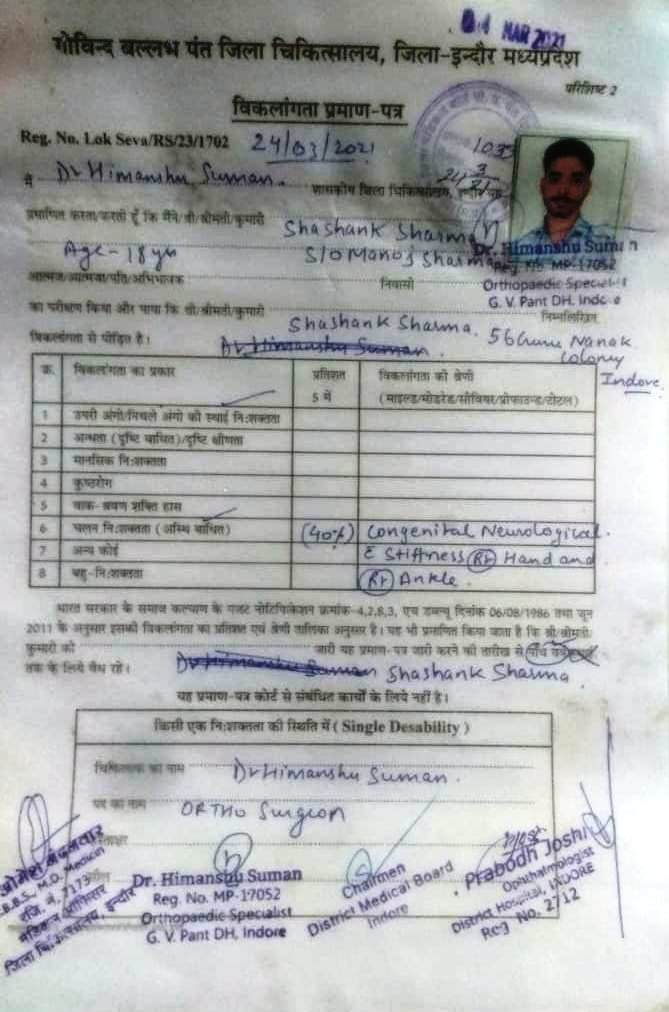 04 MAR 2021
गोविन्द बल्लभ पंत जिला चिकित्सालय, जिला-इन्दौर मध्यप्रदेश
परिशिष्ट 2
विकलांगता प्रमाण-पत्र
Reg. No. Lok Seva/RS/23/1702 24/03/2021
मैं Dr Himanshu Suman. शासकीय जिला चिकित्सालय, इन्दौर
प्रमाणित करता/करती हूँ कि मैंने/श्री/श्रीमती/कुमारी Shashank Sharma
Age - 18 yr S/O Manoj Sharma
Dr. Himanshu Suman
Reg. No. MP-17052
Orthopaedic Specialist
G. V. Pant DH, Indore
आत्मज/आत्मजा/पति/अभिभावक निवासी
का परीक्षण किया और पाया कि श्री/श्रीमती/कुमारी Shashank Sharma. निम्नलिखित
विकलांगता से पीड़ित है। Dr Himanshu Suman. 56 Nanak Colony Indore
क्र. विकलांगता का प्रकार प्रतिशत विकलांगता की श्रेणी
5 में (माइल्ड/मोडरेड/सीवियर/प्रोफाउन्ड/टोटल)
1 उपरी अंगो/निचले अंगो की स्थाई नि:शक्तता
2 अन्धता (दृष्टि बाधित)/दृष्टि क्षीणता
3 मानसिक नि:शक्तता
4 कुष्ठरोग
5 वाक-श्रवण शक्ति हास
6 चलन नि:शक्तता (अस्थि बाधित) (40%) Congenital Neurological.
7 अन्य कोई c Stiffness (Rt) Hand and
8 बहु-नि:शक्तता (Rt) Ankle.
भारत सरकार के समाज कल्याण के गजट नोटिफिकेशन क्रमांक-4,2,8,3, एच डब्ल्यू दिनांक 06/08/1986 तथा जून
2011 के अनुसार इसकी विकलांगता का प्रतिशत एवं श्रेणी तालिका अनुसार है। यह भी प्रमाणित किया जाता है कि श्री/श्रीमती/
कुमारी को जारी यह प्रमाण-पत्र जारी करने की तारीख से पाँच
तक के लिये वैध रहे। Dr Himanshu Suman Shashank Sharma
यह प्रमाण-पत्र कोर्ट से संबंधित कार्यो के लिये नहीं है।
किसी एक नि:शक्तता की स्थिति में ( Single Desability )
चिकित्सक का नाम Dr Himanshu Suman.
पद का नाम ORTHO Surgeon
Dr. Himanshu Suman
Reg. No. MP-17052
Orthopaedic Specialist
G. V. Pant DH, Indore
Chairmen
District Medical Board
Indore
Prabodh Joshi
Ophthalmologist
District Hospital, INDORE
Reg. No. 2712
M.B.B.S., M.D. Medicin
रजि. नं. 7173
मेडिकल ऑफिसर
जिला चिकित्सालय, इन्दौर